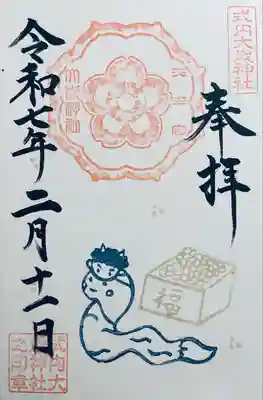 式内大嶽神社
奉拝
令和七年二月十一日
福
式内大
神社
之印章